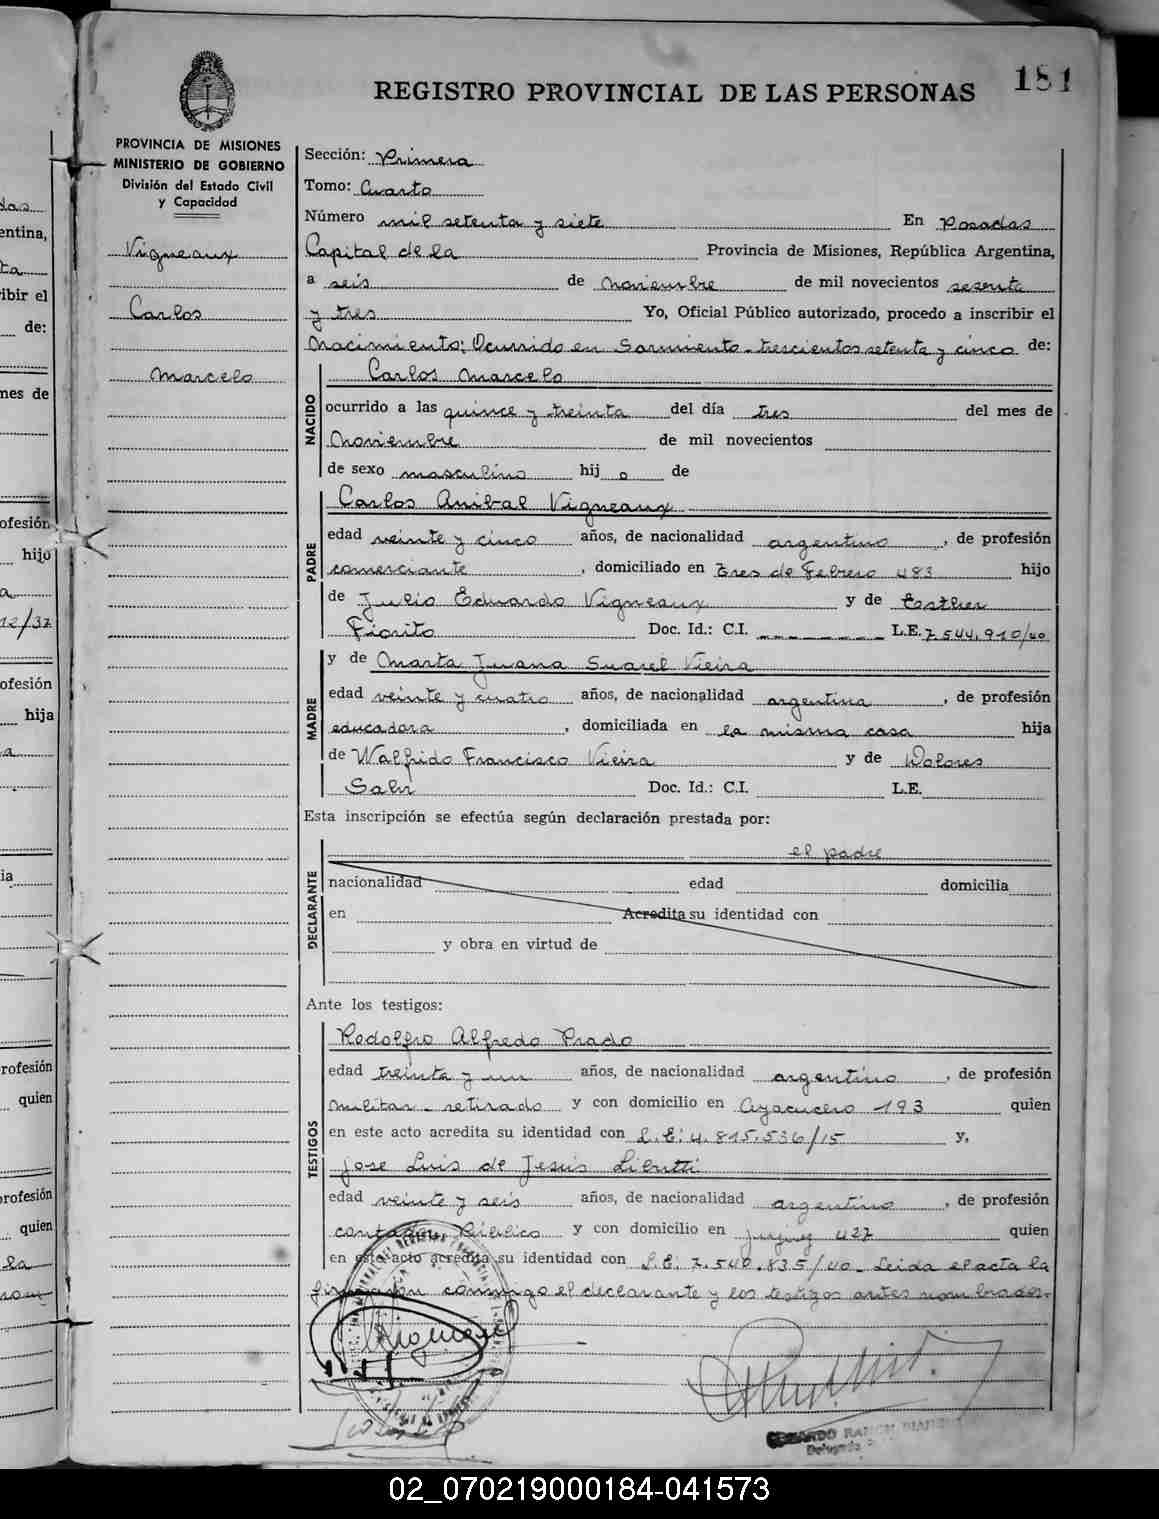 181
REGISTRO PROVINCIAL DE LAS PERSONAS
PROVINCIA DE MISIONES
MINISTERIO DE GOBIERNO
División del Estado Civil
y Capacidad
Vigneaux
Carlos
Marcelo
Sección: Primera
Tomo: Cuarto
Número mil setenta y siete En Posadas
Capital de la Provincia de Misiones, República Argentina,
a seis de noviembre de mil novecientos sesenta
y tres Yo, Oficial Público autorizado, procedo a inscribir el
Nacimiento: Ocurrido en Sarmiento - trescientos setenta y cinco de:
NACIDO
Carlos Marcelo
ocurrido a las quince y treinta del día tres del mes de
Noviembre de mil novecientos
de sexo masculino hij o de
PADRE
Carlos Anibal Vigneaux
edad veinte y cinco años, de nacionalidad argentino, de profesión
comerciante, domiciliado en Tres de Febrero 483 hijo
de Julio Eduardo Vigneaux y de Esther
Fiorito Doc. Id.: C.I. L.E. 7.544.910/40
MADRE
y de Marta Juana Vieira
edad veinte y cuatro años, de nacionalidad argentina, de profesión
educadora, domiciliada en la misma casa hija
de Walfrido Francisco Vieira y de Dolores
Doc. Id.: C.I. L.E.
Esta inscripción se efectúa según declaración prestada por:
DECLARANTE
el padre
nacionalidad edad domicilia
en Acredita su identidad con
y obra en virtud de
Ante los testigos:
TESTIGOS
Rodolfo Alfredo Prado
edad treinta y un años, de nacionalidad argentino, de profesión
militar - retirado y con domicilio en Ayacucho 193 quien
en este acto acredita su identidad con L.E: 4.815.536/15 y,
Jose Luis de Jesús Libutti
edad veinte y seis años, de nacionalidad argentino, de profesión
contador Público y con domicilio en 427 quien
en este acto acredita su identidad con L.E: 7.540.835/40 - Leida el acta la
firmaron conmigo el declarante y los testigos antes nombrados.-
02_070219000184-041573